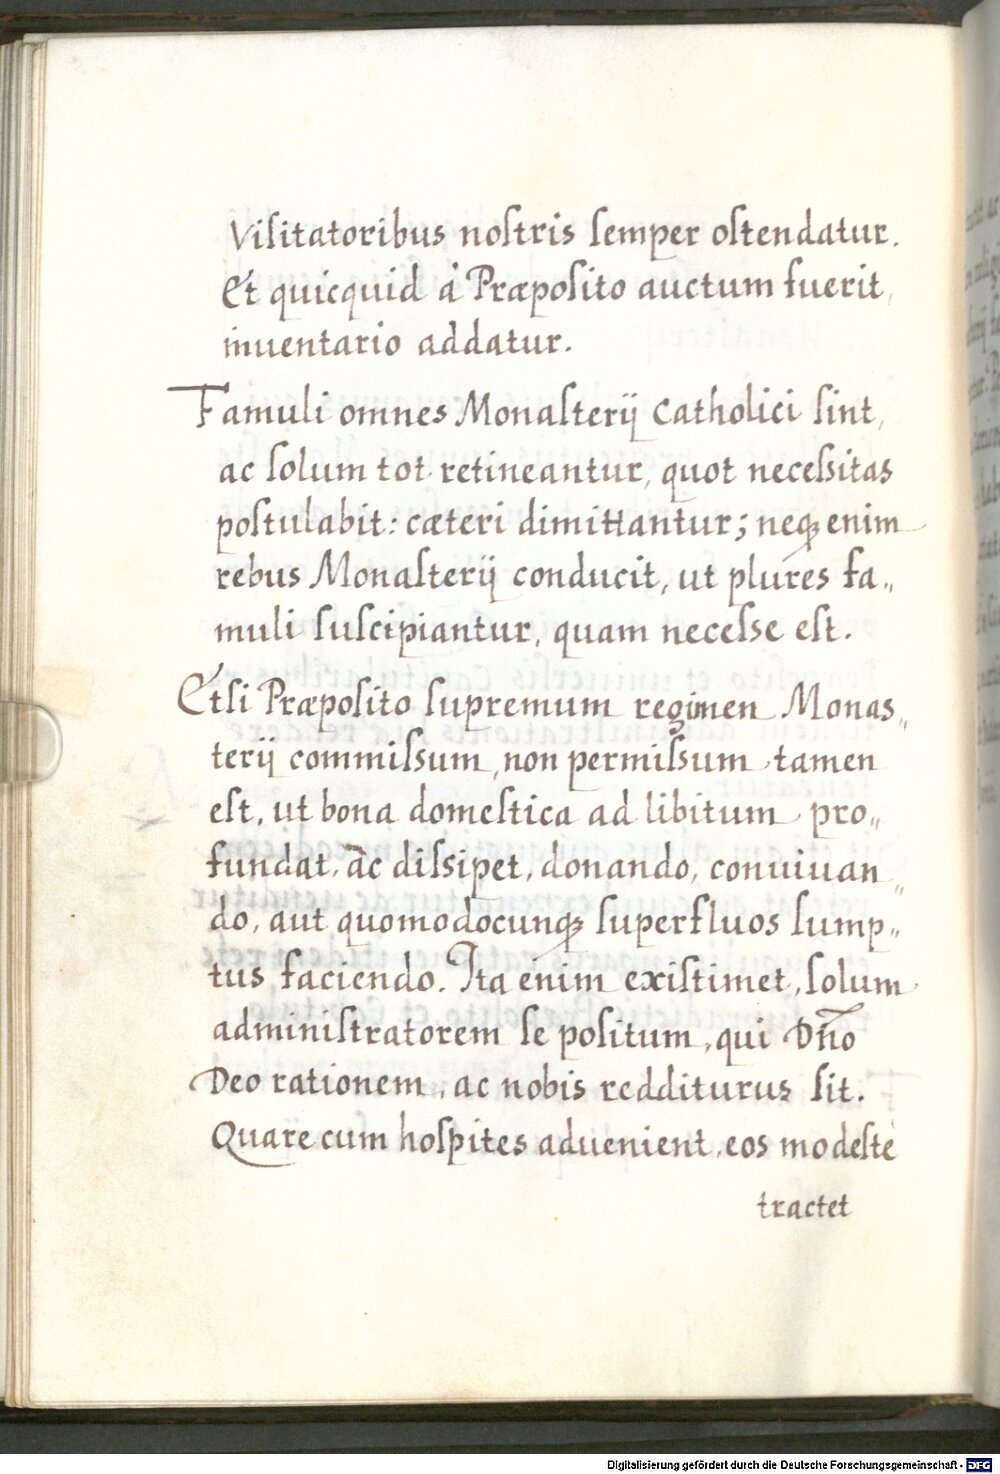 Viſitatoribus noſtris ſemper oſtendatur.
Et quicquid à Præpoſito auctum fuerit,
inuentario addatur.
Famuli omnes Monaſterij Catholici ſint,
ac ſolum tot retineantur, quot neceſsitas
poſtulabit: cæteri dimittantur; neqꝫ enim
rebus Monaſterij conducit, ut plures fa„
muli ſuſcipiantur, quam neceſse eſt.
Etſi Præpoſito ſupremum regimen Monas„
terij commiſsum, non permiſsum tamen
eſt, ut bona domeſtica ad libitum pro„
fundat, ac diſsipet, donando, conuiuan„
do, aut quomodocunqꝫ ſuperfluos ſump„
tus faciendo. Ita enim exiſtimet, ſolum
adminiſtratorem ſe poſitum, qui Dño
Deo rationem, ac nobis redditurus ſit.
Quare cum hoſpites aduenient, eos modeſte
tractet
Digitalisierung gefördert durch die Deutsche Forschungsgemeinschaft - DFG